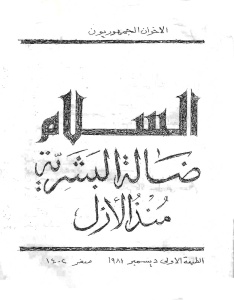 الاخوان الجمهوريون
السلام
ضالة البشرية
منذ الأزل
الطبعة الاولى ديسمبر ١٩٨١ صفر ١٤٠٢